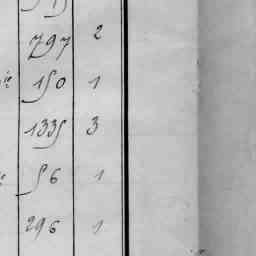 797 2
150 1
1335 3
56 1
296 1